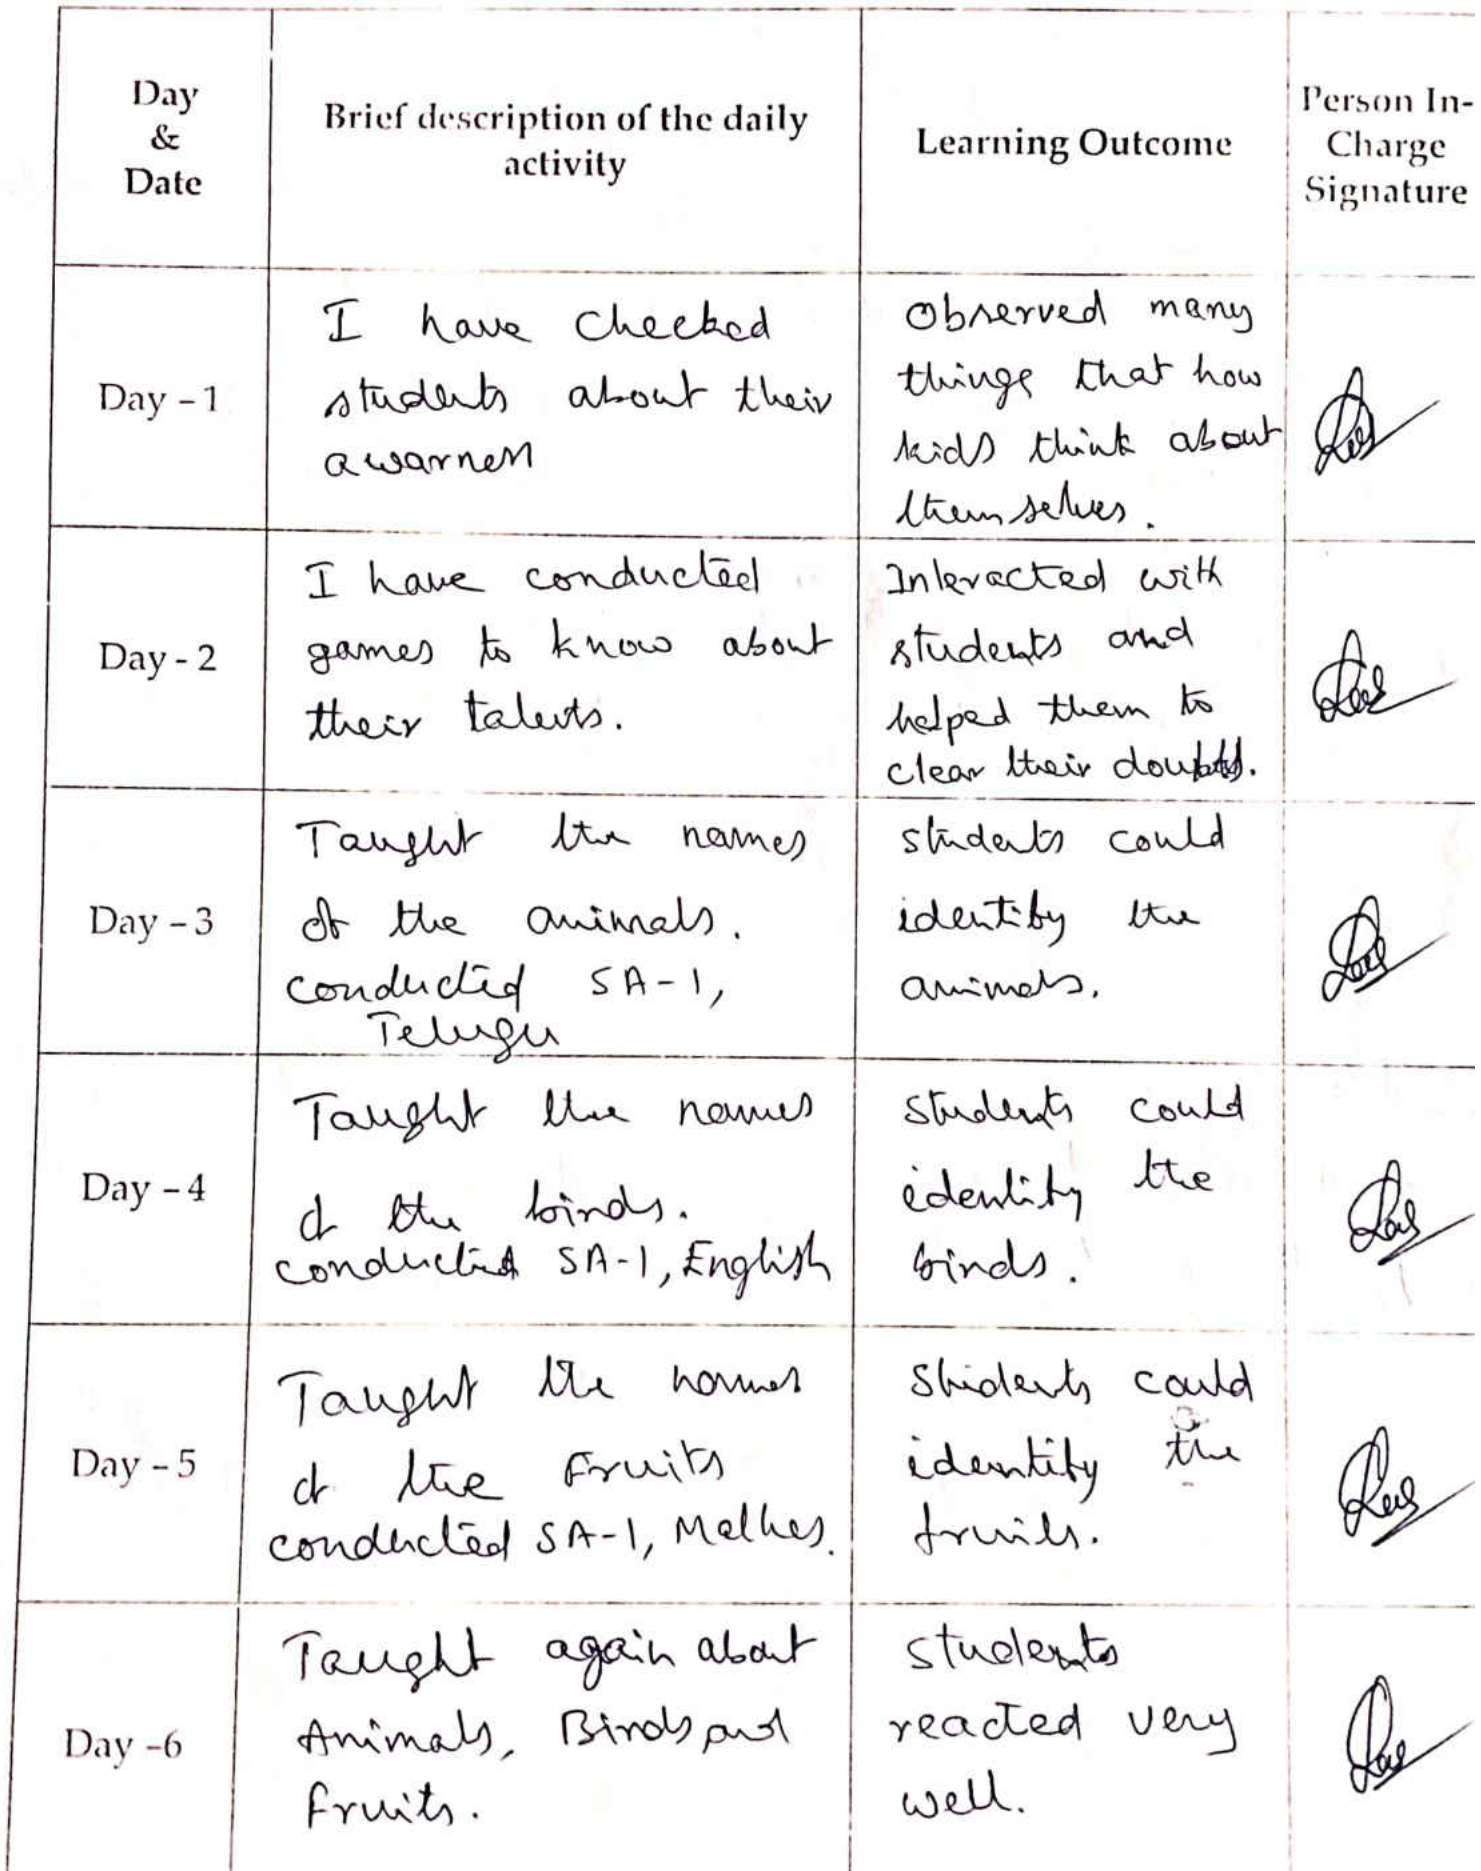 Day
&
Date
Brief description of the daily
activity
Learning Outcome
Person In-
Charge
Signature
Day - 1
I have checked
students about their
awarness
Observed many
things that how
kids think about
themselves.
Day - 2
I have conducted
games to know about
their talents.
Interacted with
students and
helped them to
clear their doubts.
Day - 3
Taught the names
of the animals.
conducted SA-1,
Telugu
students could
identify the
animals.
Day - 4
Taught the names
of the birds.
conducted SA-1, English
students could
identify the
birds.
Day - 5
Taught the names
of the Fruits
conducted SA-1, Mathes.
Students could
identify the
fruits.
Day -6
Taught again about
Animals, Birds and
Fruits.
students
reacted very
well.